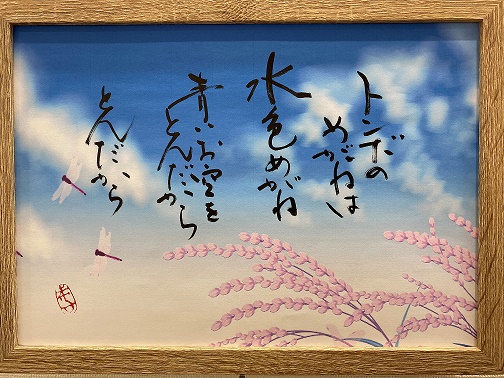 トンボの
めがねは
水色めがね
青いお空を
とんだから
とんだから